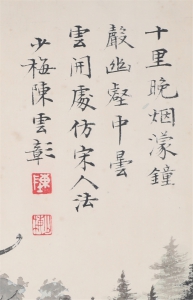 十里晚烟濛鐘
嚴幽壑中曇
雲開處仿宋人法
少梅陳雲彰